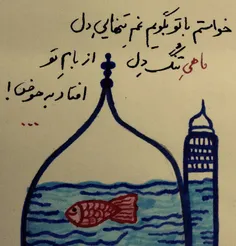 خواستم با تو بگویم غم تنهایی دل
ماهیِ تُنگِ دِل از بامِ تو
افتاد به حوض!
...